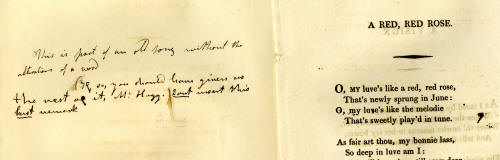 This is part of an old song without the
alterations of a word
you should have given us
the rest of it, Mr Hogg. Don't insert this
last remark
A RED, RED ROSE.
O, MY luve's like a red, red rose,
That's newly sprung in June:
O, my luve's like the melodie
That's sweetly play'd in tune.
As fair art thou, my bonnie lass,
So deep in luve am I: